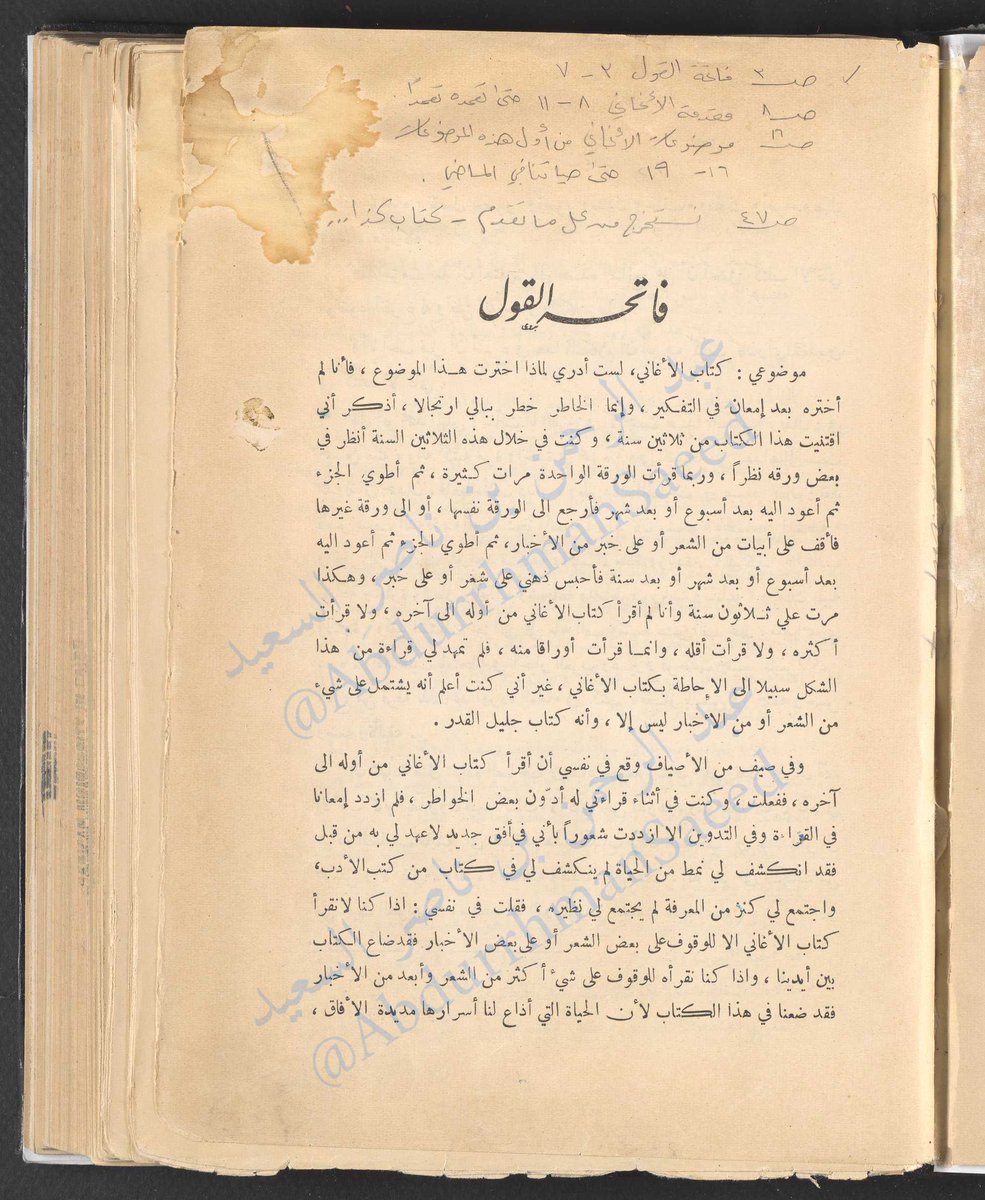 ص ٣ فاتحة القول ٣ - ٧
ص ٨ مقدمة الأغاني ٨ - ١١ حتى تعمده تعمدا
ص ١٦ موضوعات الأغاني من أول هذه الموضوعات
١٦ - ١٩ حتى حياتنا في الماضي .
ص ٤٧ نستخرج من كل ما تقدم - كتاب كذا ...
فاتحة القول
موضوعي : كتاب الأغاني، لست أدري لماذا اخترت هـذا الموضوع ، فأنا لم
أختره بعد إمعان في التفكير ، وإنما الخاطر خطر ببالي ارتجالا ، أذكر أني
اقتنيت هذا الكتاب من ثلاثين سنة ، وكنت في خلال هذه الثلاثين السنة أنظر في
بعض ورقه نظراً ، وربما قرأت الورقة الواحدة مرات كثيرة ، ثم أطوي الجزء
ثم أعود اليه بعد أسبوع أو بعد شهر فأرجع الى الورقة نفسها ، أو الى ورقة غيرها
فأقف على أبيات من الشعر أو على خبر من الأخبار، ثم أطوي الجزء ثم أعود اليه
بعد أسبوع أو بعد شهر أو بعد سنة فأحبس ذهني على شعر أو على خبر ، وهكذا
مرت علي ثـلاثون سنة وأنا لم أقرأ كتاب الأغاني من أوله الى آخره ، ولا قرأت
أكثره ، ولا قرأت أقله ، وانمـا قرأت أوراقا منه ، فلم تمهد لي قراءة من هذا
الشكل سبيلا الى الإحاطة بكتاب الأغاني ، غير أني كنت أعلم أنه يشتمل على شيء
من الشعر أو من الأخبار ليس إلا ، وأنه كتاب جليل القدر .
وفي صيف من الأصياف وقع في نفسي أن أقرأ كتاب الأغاني من أوله الى
آخره ، ففعلت ، وكنت في أثناء قراءتي له أدوّن بعض الخواطر ، فلم ازدد إمعانا
في القراءة وفي التدوين الا ازددت شعوراً بأني في أفق جديد لا عهد لي به من قبل
فقد انكشف لي نمط من الحياة لم ينكشف لي في كتاب من كتب الأدب،
واجتمع لي كنز من المعرفة لم يجتمع لي نظيره ، فقلت في نفسي : اذا كنا لا نقرأ
كتاب الأغاني الا للوقوف على بعض الشعر أو على بعض الأخبار فقد ضاع الكتاب
بين أيدينا ، واذا كنا نقرأه للوقوف على شيء أكثر من الشعر وأبعد من الأخبار
فقد ضعنا في هذا الكتاب لأن الحياة التي أذاع لنا أسرارها مديدة الأفاق ،
عبد الرحمن بن ناصر السعيد
@AbdurrhmanSaeed
عبد الرحمن بن ناصر السعيد
@AbdurrhmanSaeed